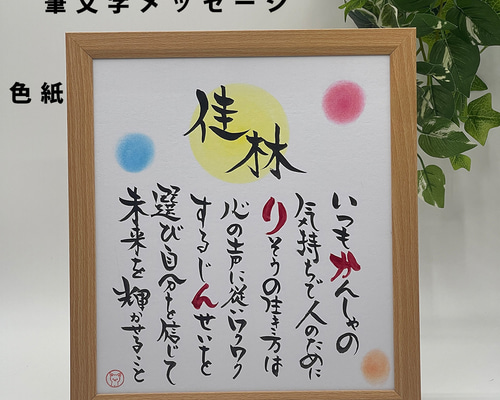 筆文字メッセージ
色紙
佳林
いつもかんしゃの
気持ちで人のために
りそうの生き方は
心の声に従いワクワク
するじんせいを
選び自分を信じて
未来を輝かせること